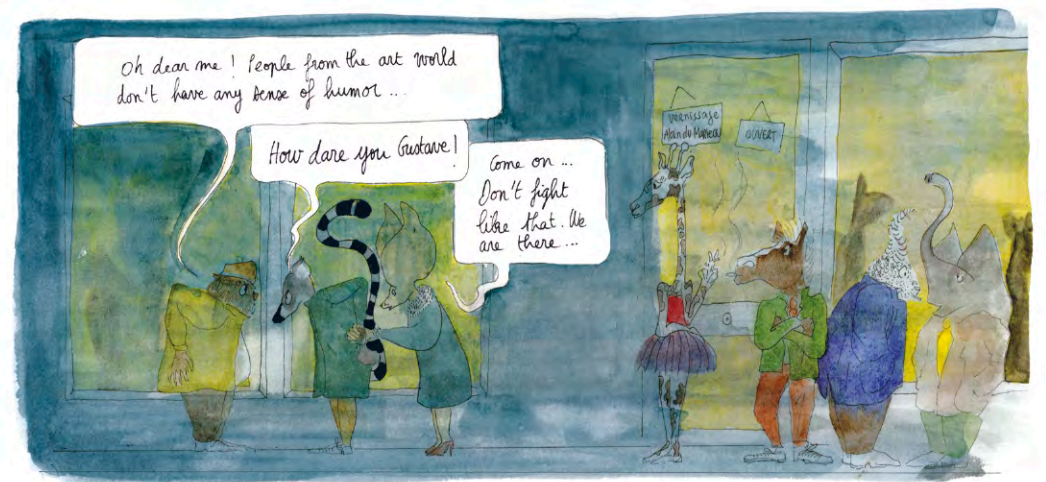 Oh dear me ! People from the art world
don't have any sense of humor ...
How dare you Gustave !
Come on ...
Don't fight
like that. We
are there ...
vernissage
Alain du
OUVERT